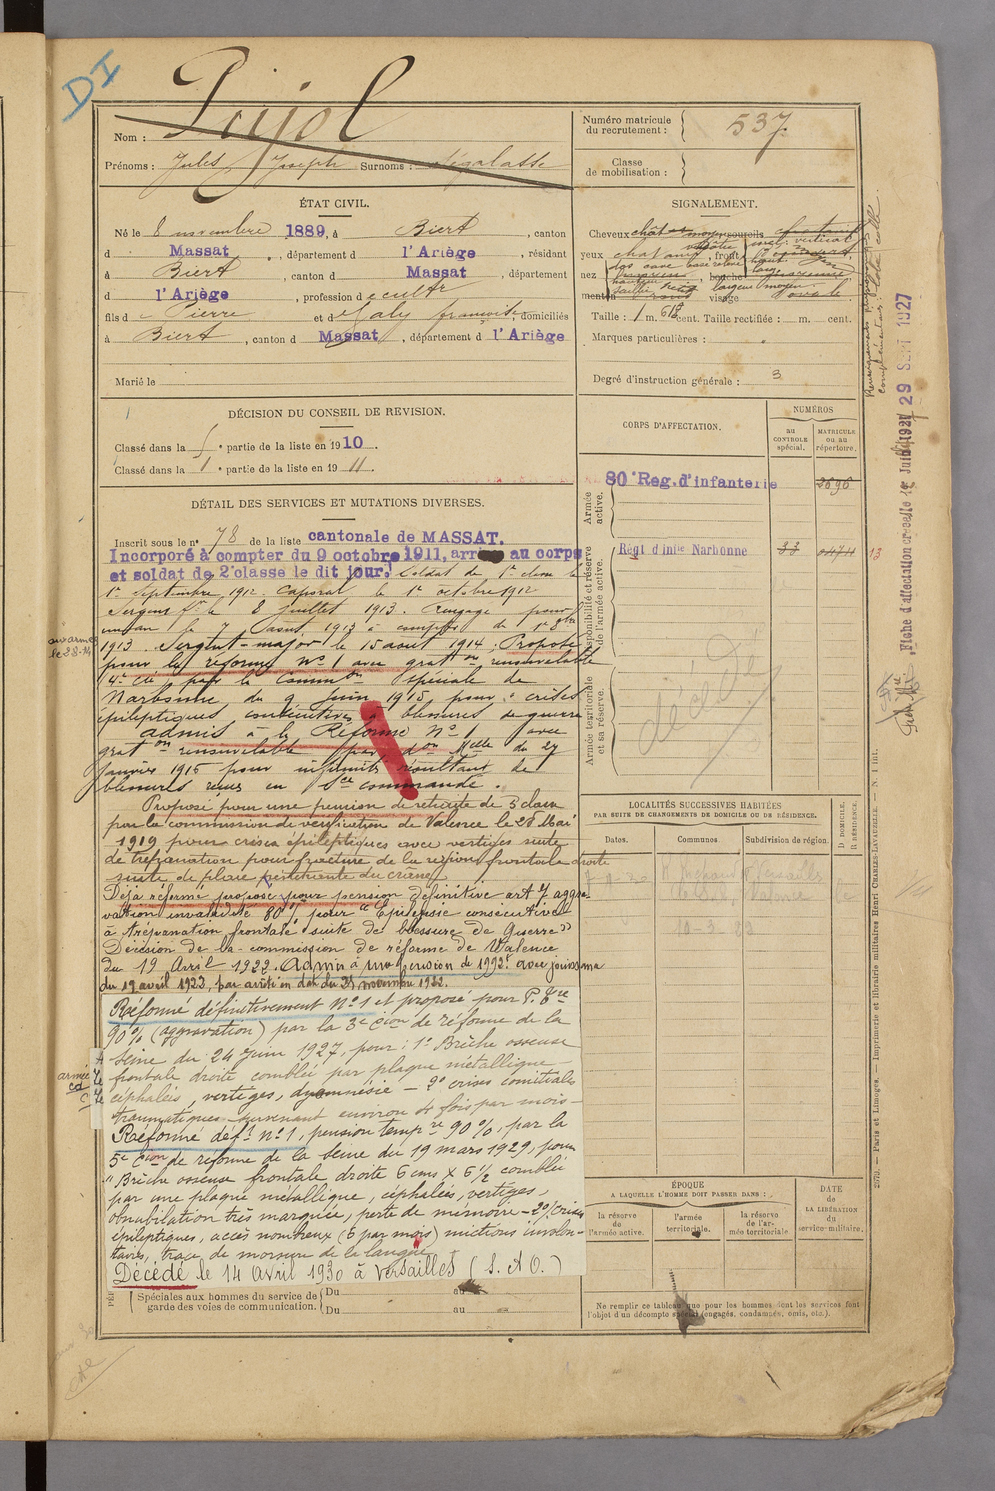 DI
Nom : Pujol
Prénoms : Jules Joseph Surnoms : Ségalasse
Numéro matricule du recrutement : 537.
Classe de mobilisation :
ÉTAT CIVIL.
Né le 8 novembre 1889, à Biert, canton
d Massat, département d l'Ariège, résidant
à Biert, canton d Massat, département
d l'Ariège, profession d e cultr
fils d e Pierre et d e Galy françoise, domiciliés
à Biert, canton d Massat, département d l'Ariège
Marié le
SIGNALEMENT.
Cheveux chât sourcils
yeux chatains, front
nez bouche
menton rond visage ovale
Taille : 1 m. 61 cent. Taille rectifiée : m. cent.
Marques particulières :
Degré d'instruction générale : 3
DÉCISION DU CONSEIL DE REVISION.
Classé dans la 5e partie de la liste en 1910.
Classé dans la 1e partie de la liste en 1911.
CORPS D'AFFECTATION.
NUMÉROS
au CONTROLE spécial.
MATRICULE ou au répertoire.
Armée active.
80e Reg. d'infanterie 2696
Disponibilité et réserve de l'armée active.
Régt d'Infie Narbonne 33 13
Armée territoriale et sa réserve.
décédé
DÉTAIL DES SERVICES ET MUTATIONS DIVERSES.
Inscrit sous le n° 78 de la liste cantonale de MASSAT.
Incorporé à compter du 9 octobre 1911, arrivé au corps
et soldat de 2e classe le dit jour. Soldat de 1e classe le
1er Septembre 1912. Caporal le 1er octobre 1912
Sergent le 8 juillet 1913. Rengagé pour
un an le 7 aout 1913 à compter du 1er 8bre
1913. Sergent-major le 15 aout 1914. Proposé
pour la réforme N° 1 avec graton renouvelable
4e Cie par la Common spéciale de
Narbonne du 9 Juin 1915 pour : crises
épileptiques consécutives à blessures de guerre
admis à la Réforme N° 1 avec
graton renouvelable par don Melle du 27
janvier 1915 pour infirmités résultant de
blessures reçues en Sce commandé.
Proposé pour une pension de retraite de 5 classe
par la commission de vérification de Valence le 28 Mai
1919 pour crises épileptiques avec vertiges suite
de trépanation pour fracture de la région frontale droite
suite de plaie pénétrante du crâne
Déjà réformé proposé pour pension définitive art 7 aggra-
vation invalidité 80% pour "Epilepsie consécutive
à trépanation frontale suite de blessure de Guerre"
Décision de la commission de réforme de Valence
du 19 Avril 1922. Admis à une pension de 1992f avec jouissance
du 19 avril 1922, par arrêté en date du 28 novembre 1922.
Réformé définitivement N° 1 et proposé pour P. Tre
90% (aggravation) par la 3e Cion de réforme de la
Seine du 24 Juin 1927, pour : 1° Brèche osseuse
frontale droite comblée par plaque métallique
céphalées, vertiges, dysmnésie - 2° crises comitiales
traumatiques survenant environ 4 fois par mois -
Réformé déft N° 1, pension tempre 90%, par la
5e Cion de réforme de la Seine du 19 mars 1929, pour
1° Brèche osseuse frontale droite 6 cms x 6 1/2 comblée
par une plaque métallique, céphalées, vertiges,
obnubilation très marquée, perte de mémoire - 2°) Crises
épileptiques, accès nombreux (6 par mois) mictions involon-
taires, trace de morsure de la langue
Décédé le 14 Avril 1930 à Versailles (S. & O.)
aux armées
armée
Spéciales aux hommes du service de garde des voies de communication.
Du au
Du au
LOCALITÉS SUCCESSIVES HABITÉES
PAR SUITE DE CHANGEMENTS DE DOMICILE OU DE RÉSIDENCE.
Dates. Communes. Subdivision de région. D. DOMICILE. R. RÉSIDENCE.
Versailles
Valence
ÉPOQUE
A LAQUELLE L'HOMME DOIT PASSER DANS :
la réserve de l'armée active.
l'armée territoriale.
la réserve de l'armée territoriale
DATE de LA LIBÉRATION du service militaire.
Ne remplir ce tableau que pour les hommes dont les services font
l'objet d'un décompte spécial (engagés, condamnés, omis, etc.).
Fiche d'affectation
29 SEPT 1927
Paris et Limoges. — Imprimerie et librairie militaires Henri CHARLES-LAVAUZELLE. — N. 1 int.